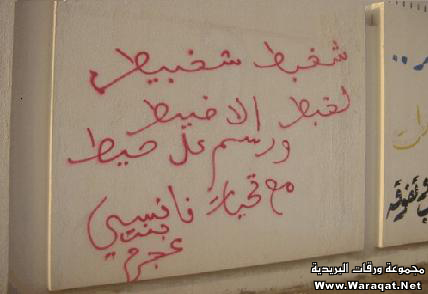 شخبط شخبيط
لخبط الاخبيط
ورسم عل حيط
مع تحيات فانسي
بنت
عجرم
مجموعة ورقات البريدية
www.Waraqat.Net